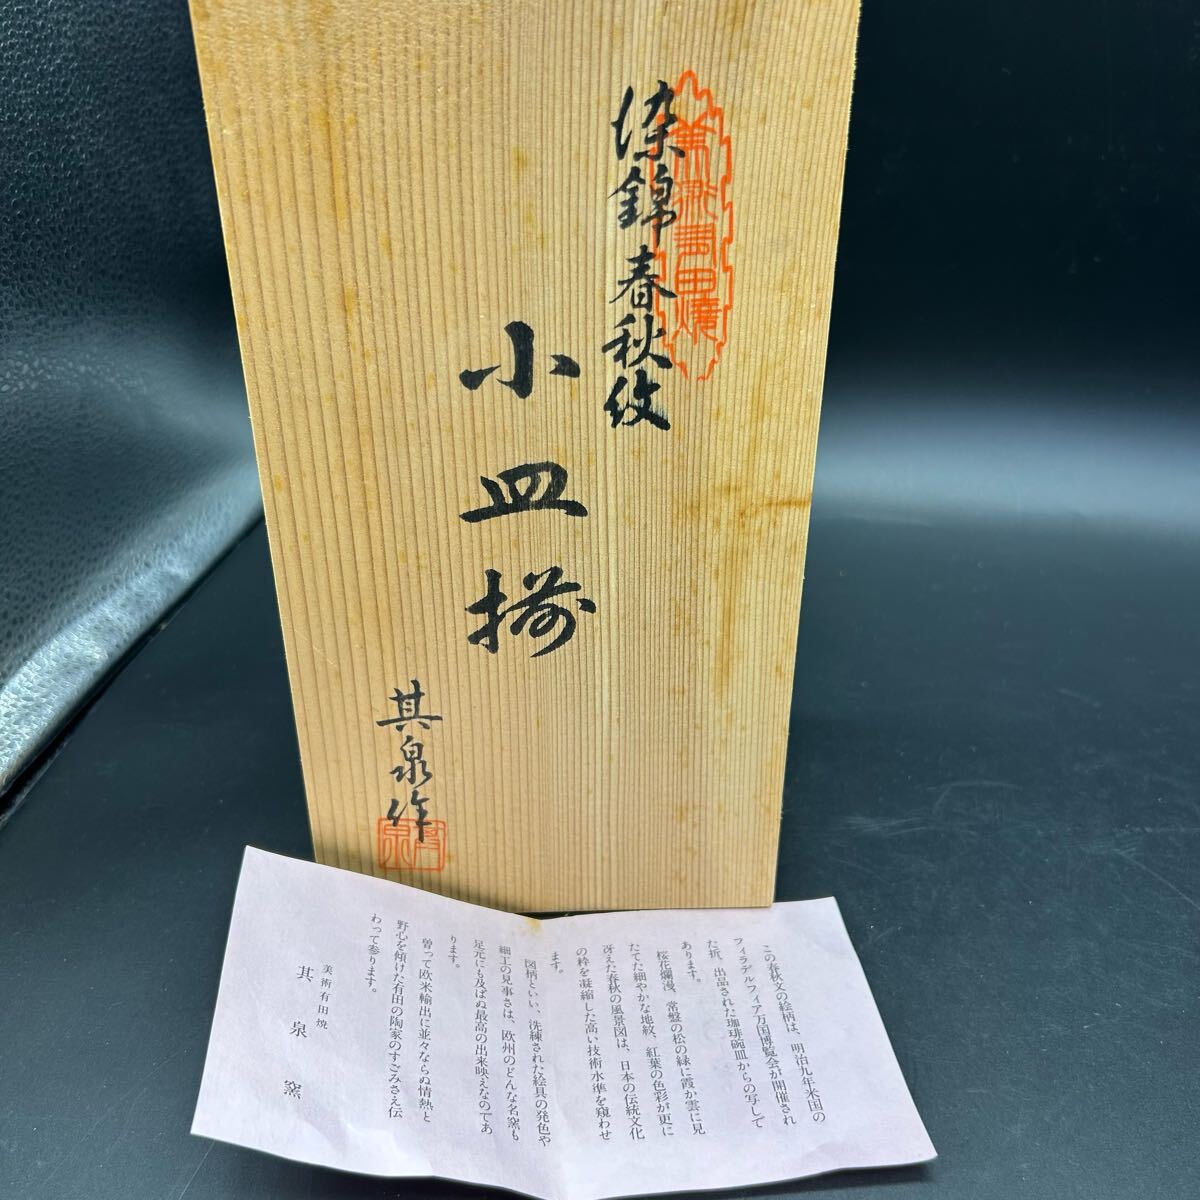 美術有田焼
染錦春秋紋
小皿揃
其泉作
其泉
この春秋文の絵柄は、明治九年米国の
フィラデルフィア万国博覧会が開催され
た折、出品された珈琲碗皿からの写して
あります。
桜花爛漫、常盤の松の緑に霞か雲に見
たてた細やかな地紋、紅葉の色彩が更に
冴えた春秋の風景図は、日本の伝統文化
の粋を凝縮した高い技術水準を窺わせ
ます。
図柄といい、洗練された絵具の発色や
細工の見事さは、欧州のどんな名窯も
足元にも及ばぬ最高の出来映えなのであ
ります。
曽って欧米輸出に並々ならぬ情熱と
野心を傾けた有田の陶家のすごみさえ伝
わって参ります。
美術有田焼
其泉窯